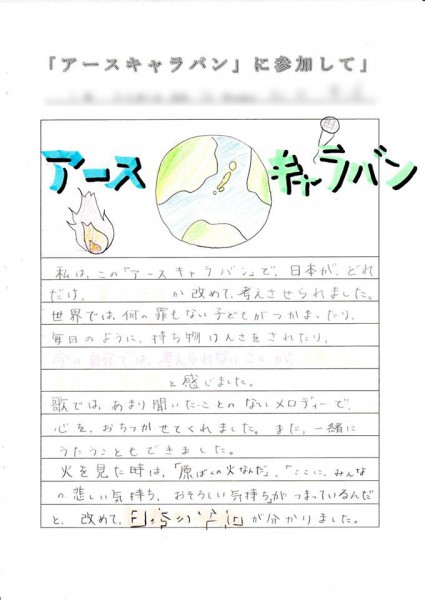 「アースキャラバン」に参加して」
アース キャラバン
私は、この「アースキャラバン」で、日本が、どれ
だけ、 か改めて、考えさせられました。
世界では、何の罪もない子どもがつかまったり、
毎日のように、持ち物けんさをされたり、
今の自分では、考えられないことが
と感じました。
歌では、あまり聞いたことのないメロディーで、
心を、おちつかせてくれました。また、一緒に
うたうこともできました。
火を見た時は、「原ばくの火なんだ」、「ここに、みんな
の悲しい気持ち、おそろしい気持ちがつまっているんだ
と、改めて、 が分かりました。